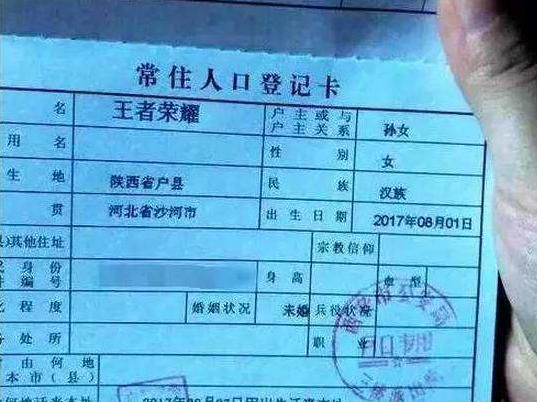 常住人口登记卡
名 王者荣耀 户主或与户主关系 孙女
用名 性别 女
生地 陕西省户县 民族 汉族
贯 河北省沙河市 出生日期 2017年08月01日
其他住址 宗教信仰
身份 编号 身高 血型
程度 婚姻状况 未婚 兵役状况
处所 职业
由何地
本市（县）